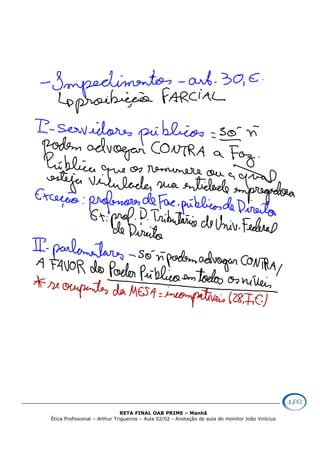 - Impedimentos - art. 30, E.
↳ proibição PARCIAL
I - servidores públicos = só ñ
podem advogar CONTRA a Faz.
Pública que os remunere ou a qual
esteja vinculada sua entidade empregadora
Exceção: professores de Fac. públicas de Direito
Ex: prof. D. Tributário de Univ. Federal
de Direito
II - parlamentares - só ñ podem advogar CONTRA/
A FAVOR do Poder Público em todos os níveis
* se ocupantes da MESA = incompatíveis (28, I, E)
RETA FINAL OAB PRIME – Manhã
Ética Profissional – Arthur Trigueiros – Aula 02/02 - Anotação de aula do monitor João Vinícius